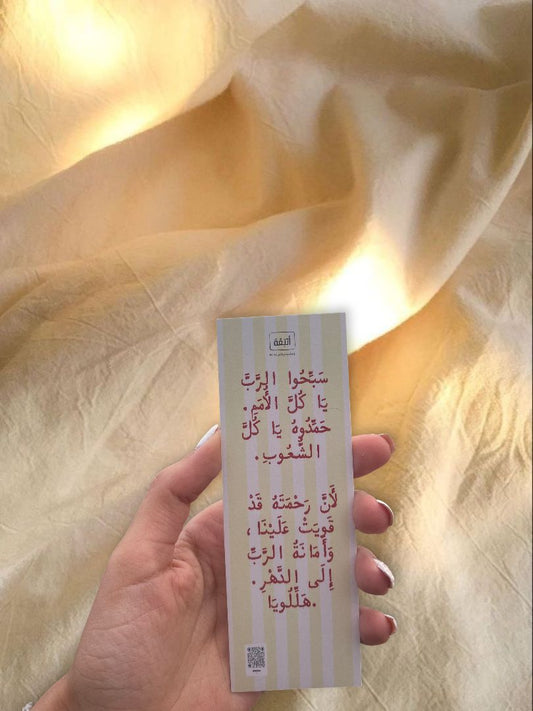 أنيقة
سَبِّحُوا الرَّبَّ
يَا كُلَّ الأُمَمِ.
حَمِّدُوهُ يَا كُلَّ
الشُّعُوبِ.
لأَنَّ رَحْمَتَهُ قَدْ
قَوِيَتْ عَلَيْنَا،
وَأَمَانَةُ الرَّبِّ
إِلَى الدَّهْرِ.
هَلِّلُويَا.